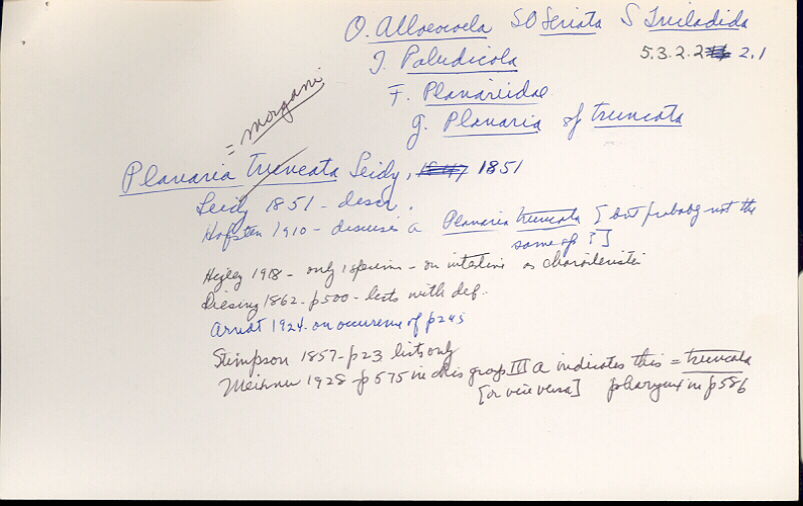 O. Alloeocoela SO Seriata S Tricladida
5.3.2.2 2.1
T. Paludicola
F. Planariidae
g. Planaria sp truncata
= morgani
Planaria truncata Leidy, 1847 1851
Leidy 1851 - descr.
Hofsten 1910 - discusses a Planaria truncata [but probably not the
same sp ?]
Hegley 1918 - only 1 specim - on as characteristic
Diesing 1862 - p500 - lists with def.
Arndt 1924 - on occurrence of p245
Stimpson 1857 - p23 lists only
Meixner 1928 - p575 in his group III a indicates this = truncata
[or vice versa] pharynx in p586